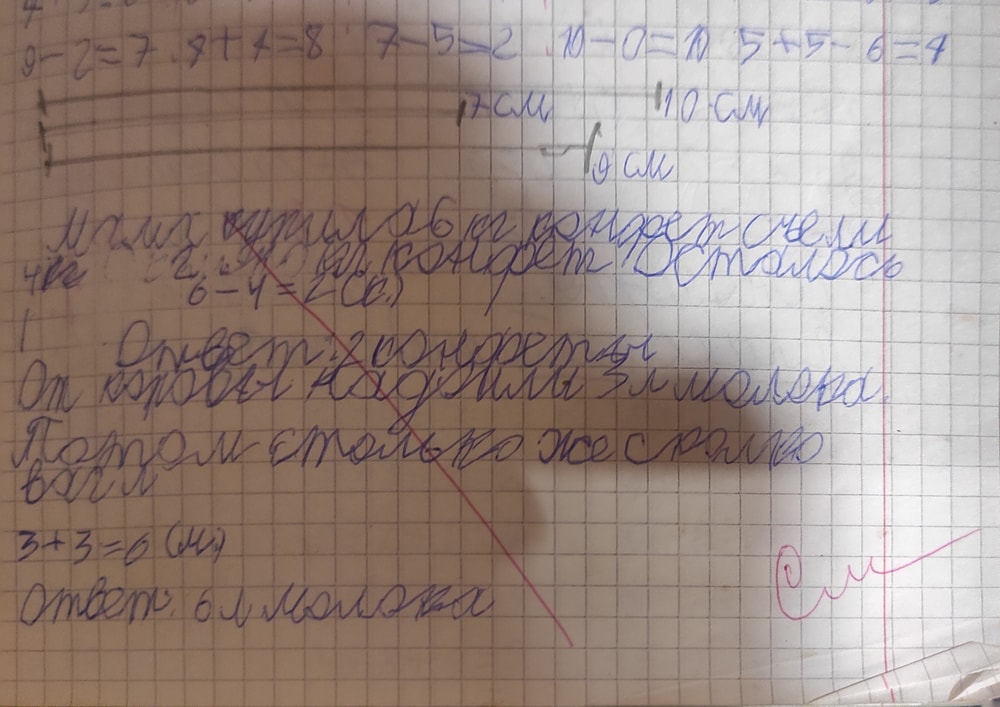 9-2=7 7+1=8 7-5=2 10-0=10 5+5-6=4
7 см 10 см
9 см
мама купила 6 кг конфет счели
4кг 2 кг конфет Осталось
6-4=2(к.)
Ответ: 2 конфеты
От коровы надоили 3 л молока.
Потом столько же сколко
3+3=6 (м.)
Ответ: 6 л молока
См